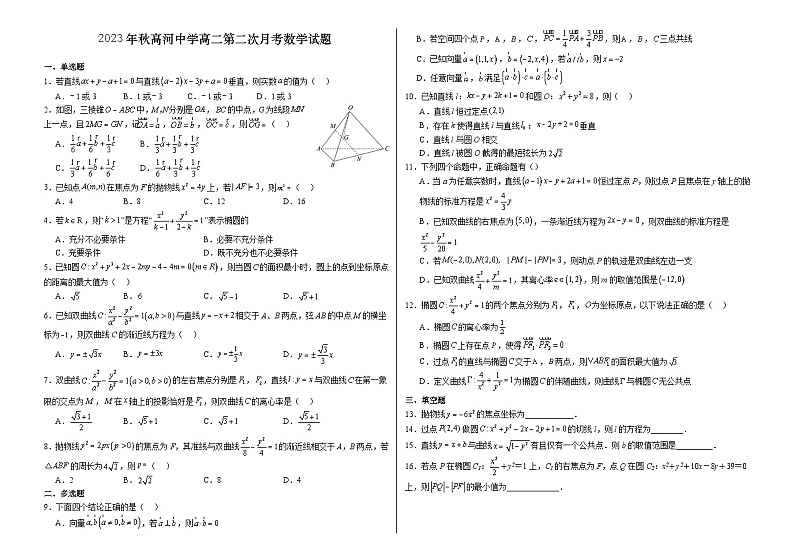 2023年秋高河中学高二第二次月考数学试题
一、单选题
1. 若直线ax+y-a+1=0与直线(a-2)x-3y+a=0垂直,则实数a的值为( )
A. -1或3 B. 1或-3 C. -1或-3 D. 1或3
2. 如图,三棱锥O-ABC中,M,N分别是OA,BC的中点,G为线段MN
上一点,且2MG=GN,记OA=a,OB=b,OC=c,则OG=( )
A. 1/6 a+1/6 b+1/3 c B. 1/3 a+1/3 b+1/3 c
C. 1/3 a+1/6 b+1/6 c D. 1/6 a+1/3 b+1/3 c
O
M
G
A
C
B
N
3. 已知点A(m,n)在焦点为F的抛物线x²=4y上,若|AF|=3,则m²=( )
A. 4 B. 8 C. 12 D. 16
4. 若k∈R,则“k>1”是方程“x²/(k-1)+y²/(2-k)=1”表示椭圆的
A. 充分不必要条件 B. 必要不充分条件
C. 充要条件 D. 既不充分也不必要条件
5. 已知圆C:x²+y²+2x-2my-4-4m=0(m∈R),则当圆C的面积最小时,圆上的点到坐标原点
的距离的最大值为( )
A. √5 B. 6 C. √5-1 D. √5+1
6. 已知双曲线C:x²/a²-y²/b²=1(a,b>0)与直线y=-x+2相交于A、B两点,弦AB的中点M的横坐
标为-1,则双曲线C的渐近线方程为( )
A. y=±√3x B. y=±3x C. y=±1/3 x D. y=±√3/3 x
7. 双曲线C:x²/a²-y²/b²=1(a>0,b>0)的左右焦点分别是F₁,F₂,直线l:y=x与双曲线C在第一象
限的交点为M,M在x轴上的投影恰好是F₂,则双曲线C的离心率是( )
A. (√3+1)/2 B. √5+1 C. √3+1 D. (√5+1)/2
8. 抛物线y²=2px(p>0)的焦点为F,其准线与双曲线x²/8-y²/4=1的渐近线相交于A,B两点,若
△ABF的周长为4√2,则p=( )
A. 2 B. 2√2 C. 8 D. 4
二、多选题
9. 下面四个结论正确的是( )
A. 向量a,b(a≠0,b≠0),若a⊥b,则a·b=0
B. 若空间四个点P,A,B,C,PC=1/4 PA+3/4 PB,则A,B,C三点共线
C. 已知向量a=(1,1,x),b=(-2,x,4),若a//b,则x=-2
D. 任意向量a,b满足(a·b)·c=a·(b·c)
10. 已知直线l:kx-y+2k+1=0和圆O:x²+y²=8,则( )
A. 直线l恒过定点(2,1)
B. 存在k使得直线l与直线l₀:x-2y+2=0垂直
C. 直线l与圆O相交
D. 直线l被圆O截得的最短弦长为2√2
11. 下列四个命题中,正确命题有()
A. 当a为任意实数时,直线(a-1)x-y+2a+1=0恒过定点P,则过点P且焦点在y轴上的抛
物线的标准方程是x²=4/3 y
B. 已知双曲线的右焦点为(5,0),一条渐近线方程为2x-y=0,则双曲线的标准方程是
x²/5-y²/20=1
C. 若M(-2,0),N(2,0),|PM|-|PN|=3,则动点P的轨迹是双曲线左边一支
D. 已知双曲线x²/4+y²/m=1,其离心率e∈(1,2),则m的取值范围是(-12,0)
12. 椭圆C:x²/4+y²=1的两个焦点分别为F₁,F₂,O为坐标原点,以下说法正确的是( )
A. 椭圆C的离心率为1/2
B. 椭圆C上存在点P,使得PF₁·PF₂=0
C. 过点F₂的直线与椭圆C交于A,B两点,则△ABF₁的面积最大为√3
D. 定义曲线Γ:4/x²+1/y²=1为椭圆C的伴随曲线,则曲线Γ与椭圆C无公共点
三、填空题
13. 抛物线y=-6x²的焦点坐标为____________.
14. 过点P(2,4)做圆C:x²+y²-2x-2y+1=0的切线l,则l的方程为________.
15. 直线y=x+b与曲线x=√(1-y²)有且仅有一个公共点.则b的取值范围是_________.
16. 若点P在椭圆C₁:x²/2+y²=1上,C₁的右焦点为F,点Q在圆C₂:x²+y²+10x-8y+39=0
上,则|PQ|-|PF|的最小值为____________.